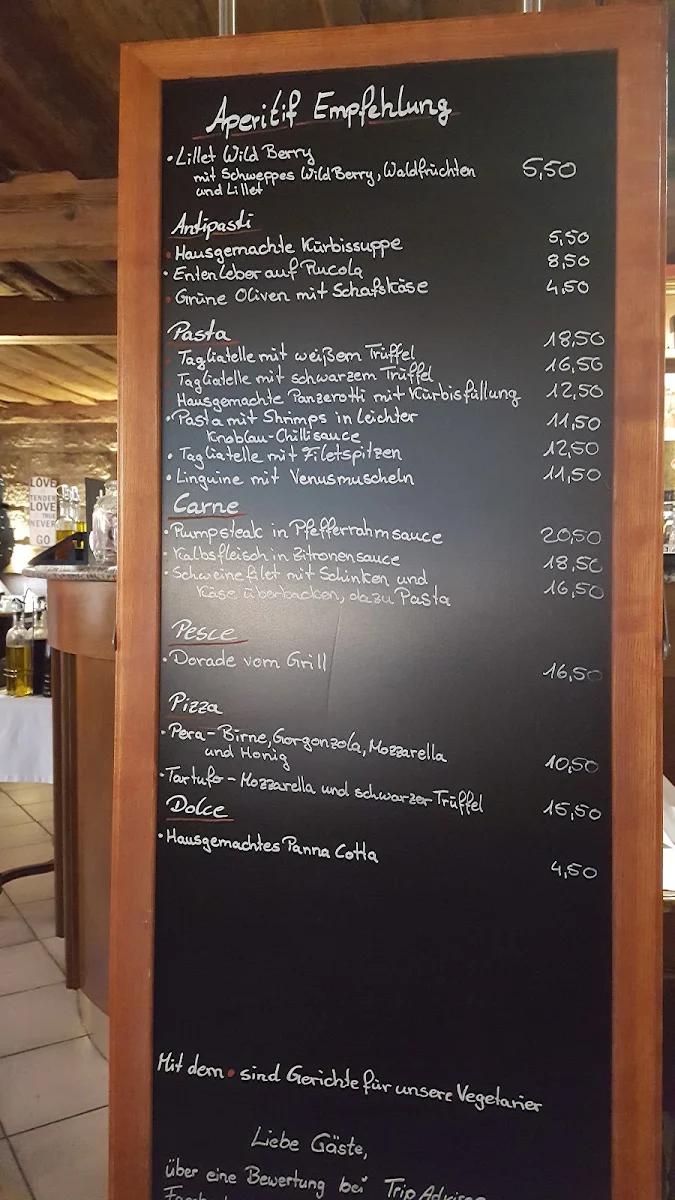 Aperitif Empfehlung
• Lillet Wild Berry
mit Schweppes Wild Berry, Waldfrüchten 5,50
und Lillet
Antipasti
• Hausgemachte Kürbissuppe 5,50
• Entenleber auf Rucola 8,50
• Grüne Oliven mit Schafskäse 4,50
Pasta
• Tagliatelle mit weißem Trüffel 18,50
• Tagliatelle mit schwarzem Trüffel 16,50
Hausgemachte Panzerotti mit Kürbisfüllung 12,50
• Pasta mit Shrimps in leichter 11,50
Knoblau-Chillisauce
• Tagliatelle mit Filetspitzen 12,50
• Linguine mit Venusmuscheln 11,50
Carne
• Rumpsteak in Pfefferrahmsauce 20,50
• Kalbsfleisch in Zitronensauce 18,50
• Schweinefilet mit Schinken und 16,50
Käse überbacken, dazu Pasta
Pesce
• Dorade vom Grill 16,50
Pizza
• Pera - Birne, Gorgonzola, Mozzarella
und Honig 10,50
• Tartufo - Mozzarella und schwarzer Trüffel 15,50
Dolce
• Hausgemachtes Panna Cotta 4,50
Mit dem • sind Gerichte für unsere Vegetarier
Liebe Gäste,
über eine Bewertung bei Trip
LOVE
TENDER
LOVE
TRUE
NEVER
GO